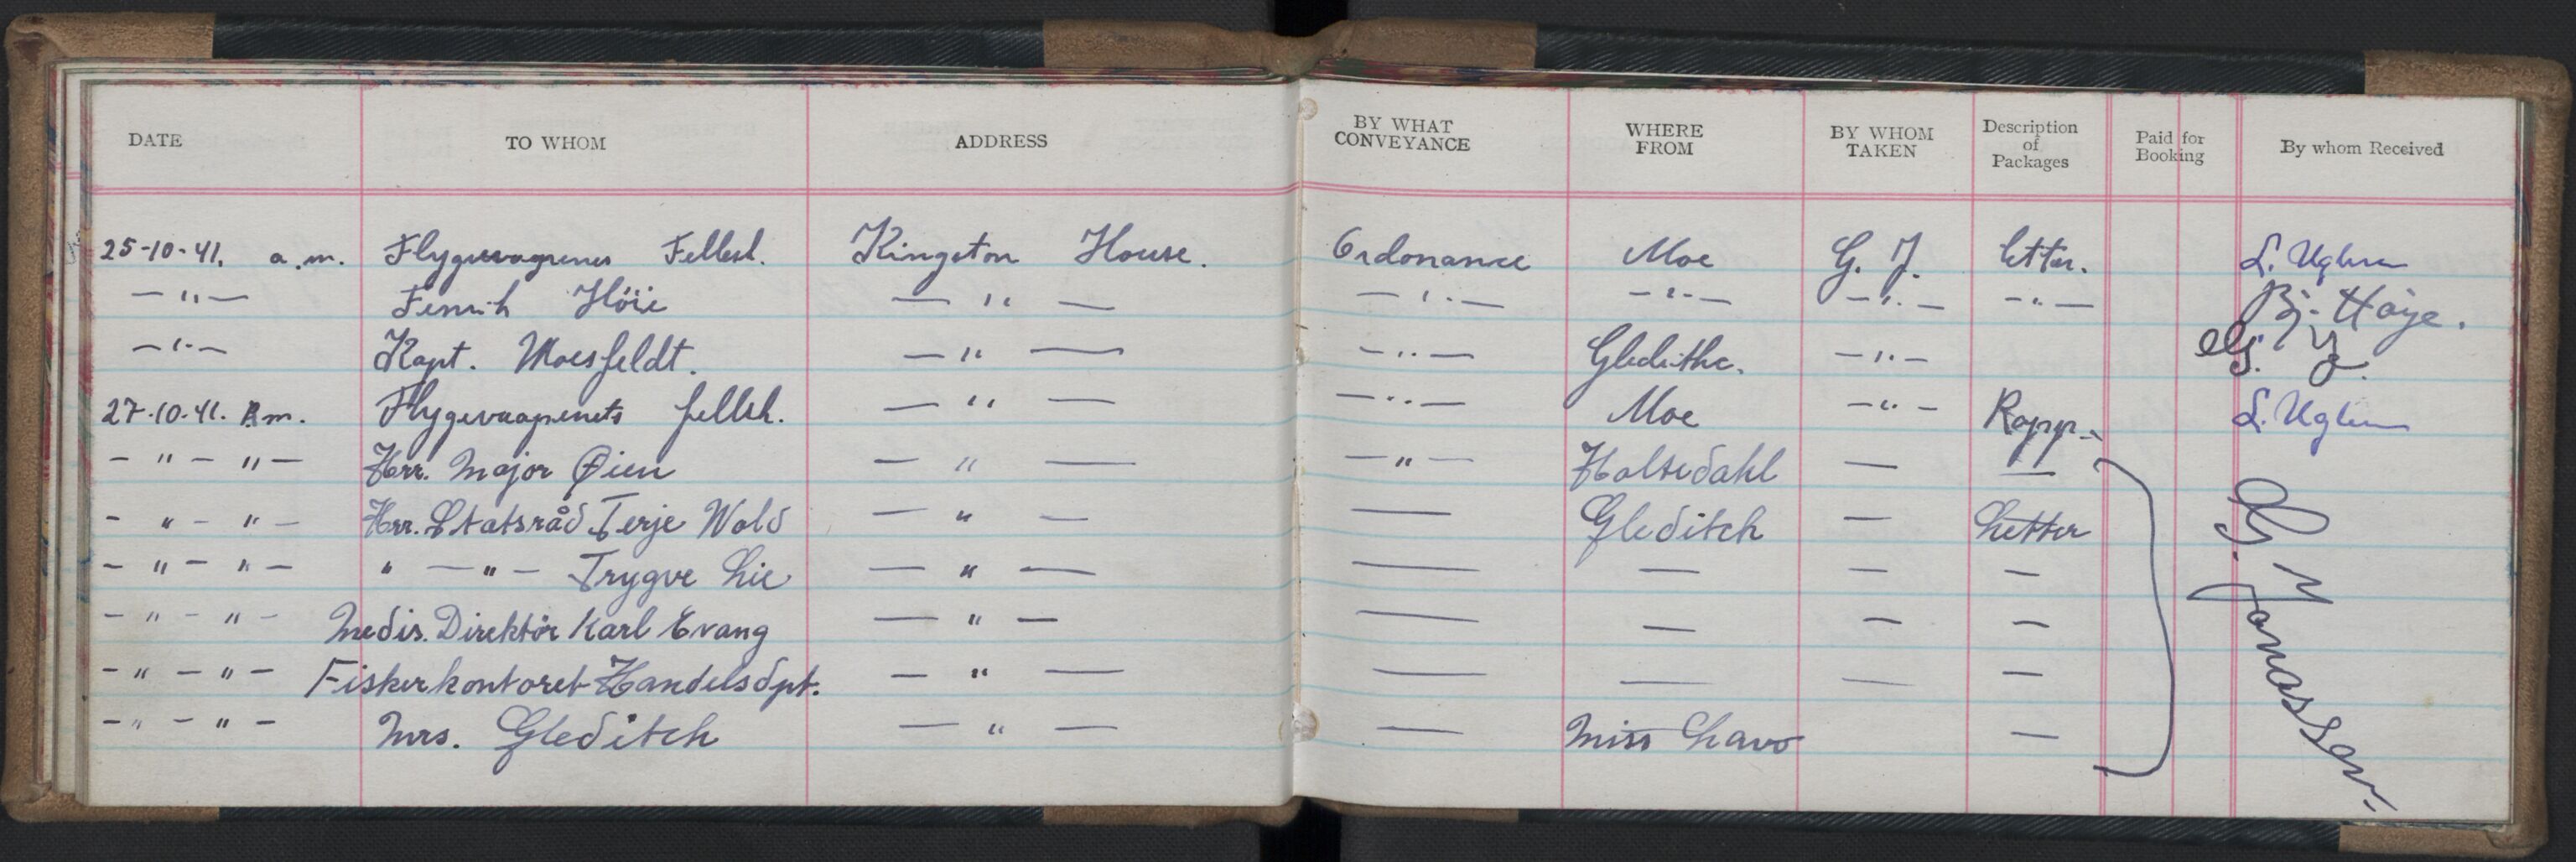 DATE TO WHOM ADDRESS BY WHAT CONVEYANCE WHERE FROM BY WHOM TAKEN Description of Packages Paid for Booking By whom Received
25-10-41. a.m. Flygevaapnenes Fellesk. Kingston House. Ordonance Moe G. J. letter. L. Uglum
— " — Fenrik Höie — " — — " — — " — — " — — " — Bj. Høye.
— " — Kapt. — " — — " — — " —
27-10-41. P.m. Flygevaapenets fellsk. — " — — " — Moe — " — Rapp. L. Uglum
— " — " — Herr. Major Øien — " — — " — Holtedahl — —
— " — " — Herr. Statsråd Terje Wold — " — — Gleditch — Letter
— " — " — " — " — Trygve Lie — " — — — — —
— " — " — Medis. Direktör Karl Evang — " — — — — —
— " — " — Fiskerkontoret Handelsdpt. — " — — — — —
— " — " — Mrs. Gleditch — " — — Miss —
G. Jonassen.